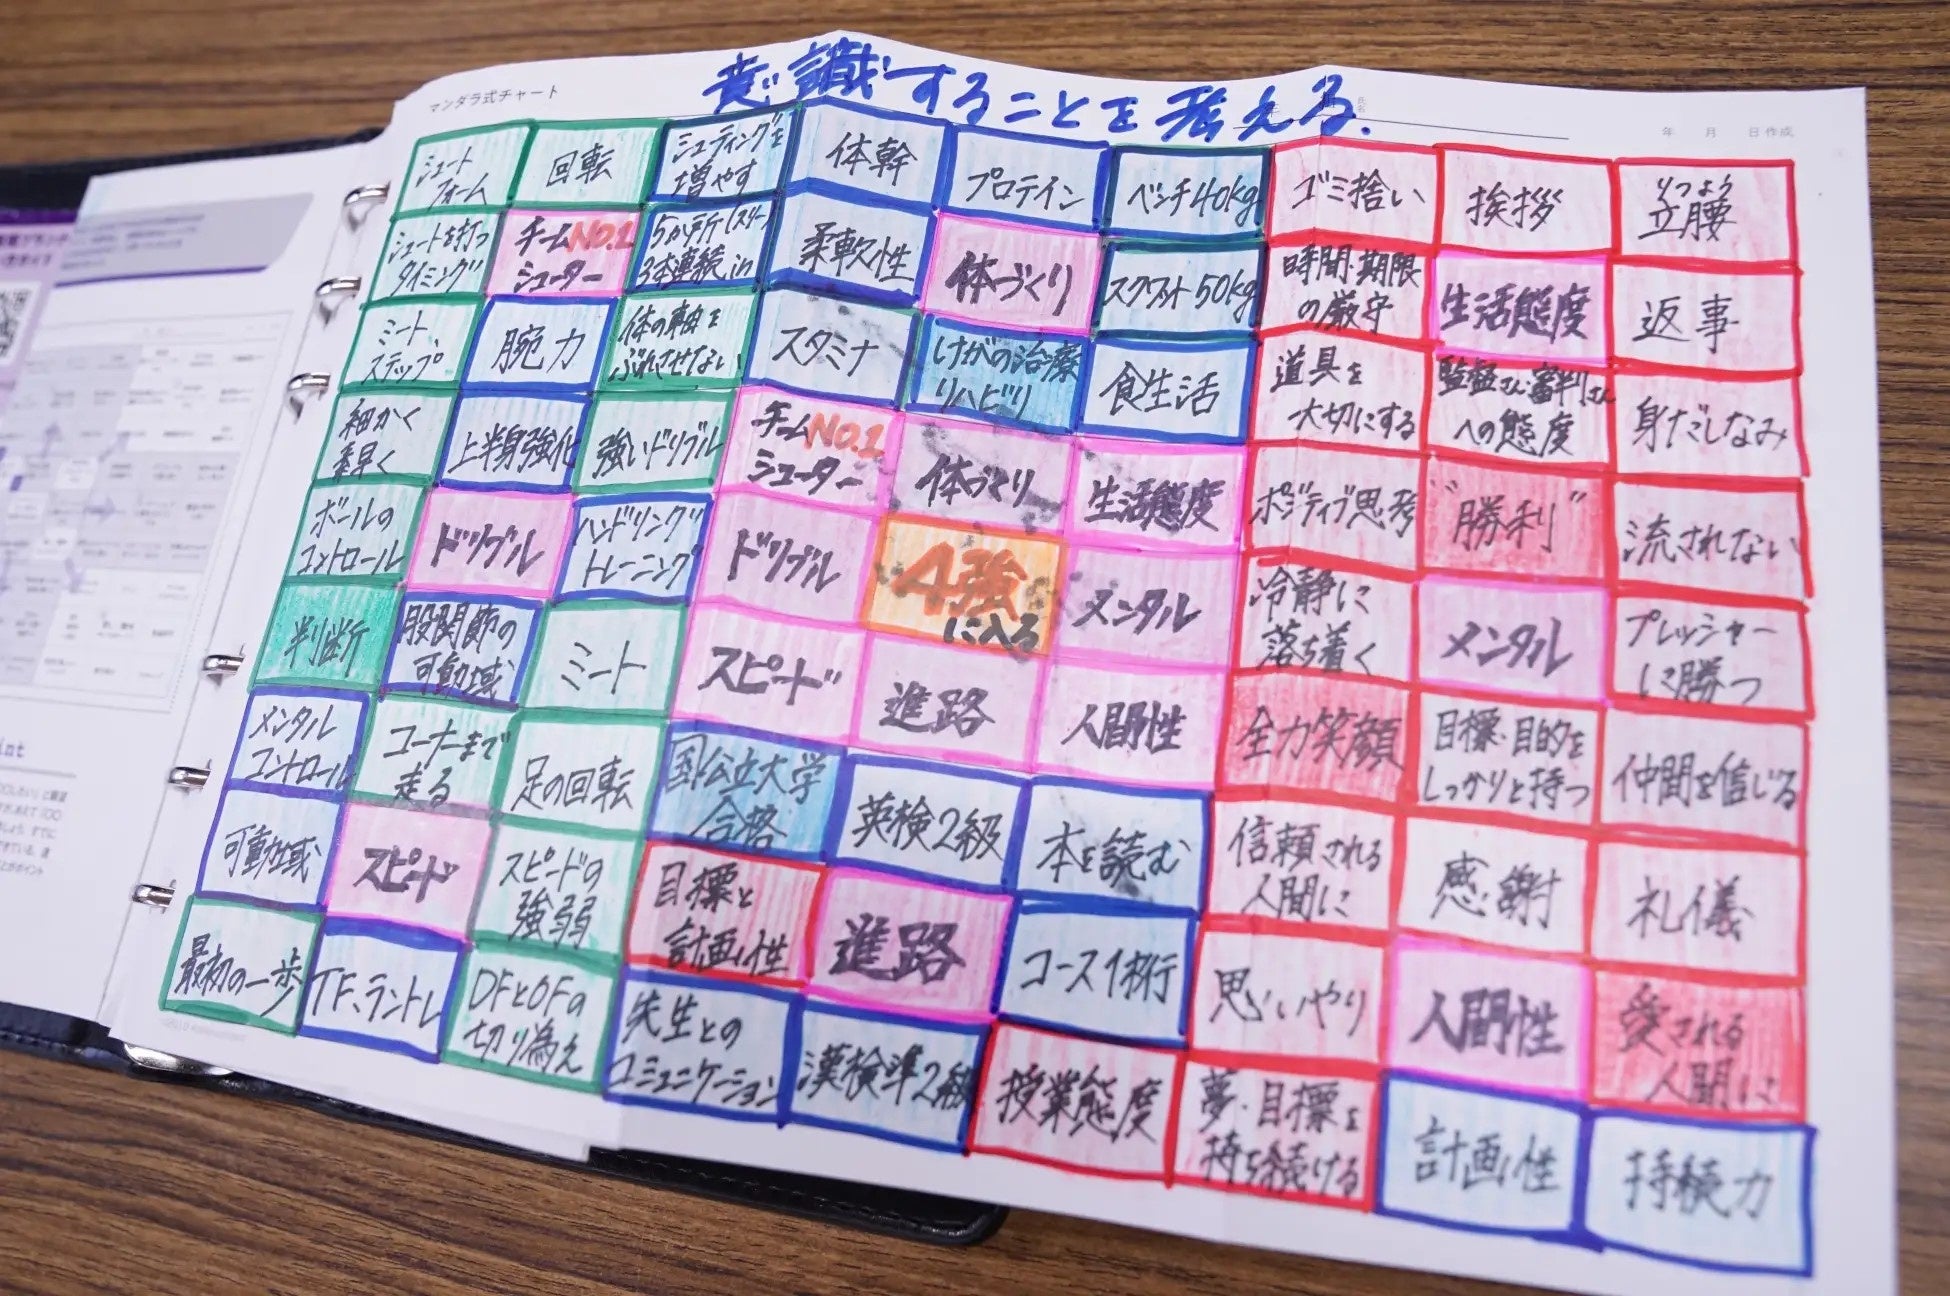 マンダラ式チャート
意識することを考える.
年 月 日作成
シュートフォーム 回転 シューティングを増やす 体幹 プロテイン ベンチ40kg ゴミ捨い 挨拶 りつよう立腰
シュートを打つタイミング チームNO.1シューター 5か所(スリー)3本連続in 柔軟性 体づくり スクワット50kg 時間・期限の厳守 生活態度 返事
ミート、ステップ 腕力 体の軸をぶれさせない スタミナ けがの治療リハビリ 食生活 道具を大切にする 監督さん・審判さんへの態度 身だしなみ
細かく素早く 上半身強化 強いドリブル チームNO.1シューター 体づくり 生活態度 ポジティブ思考 "勝利" 流されない
ボールのコントロール ドリブル ハンドリングトレーニング ドリブル 4強に入る メンタル 冷静に落ち着く メンタル プレッシャーに勝つ
判断 股関節の可動域 ミート スピード 進路 人間性 全力笑顔 目標・目的をしっかりと持つ 仲間を信じる
メンタルコントロール コーナーまで走る 足の回転 国公立大学合格 英検2級 本を読む 信頼される人間に 感謝 礼儀
可動域 スピード スピードの強弱 目標と計画性 進路 コース1桁 思いやり 人間性 愛される人間に
最初の一歩 TF、ラントレ DFとOFの切り為え 先生とのコミュニケーション 漢検準2級 授業態度 夢・目標を持ち続ける 計画性 持続力